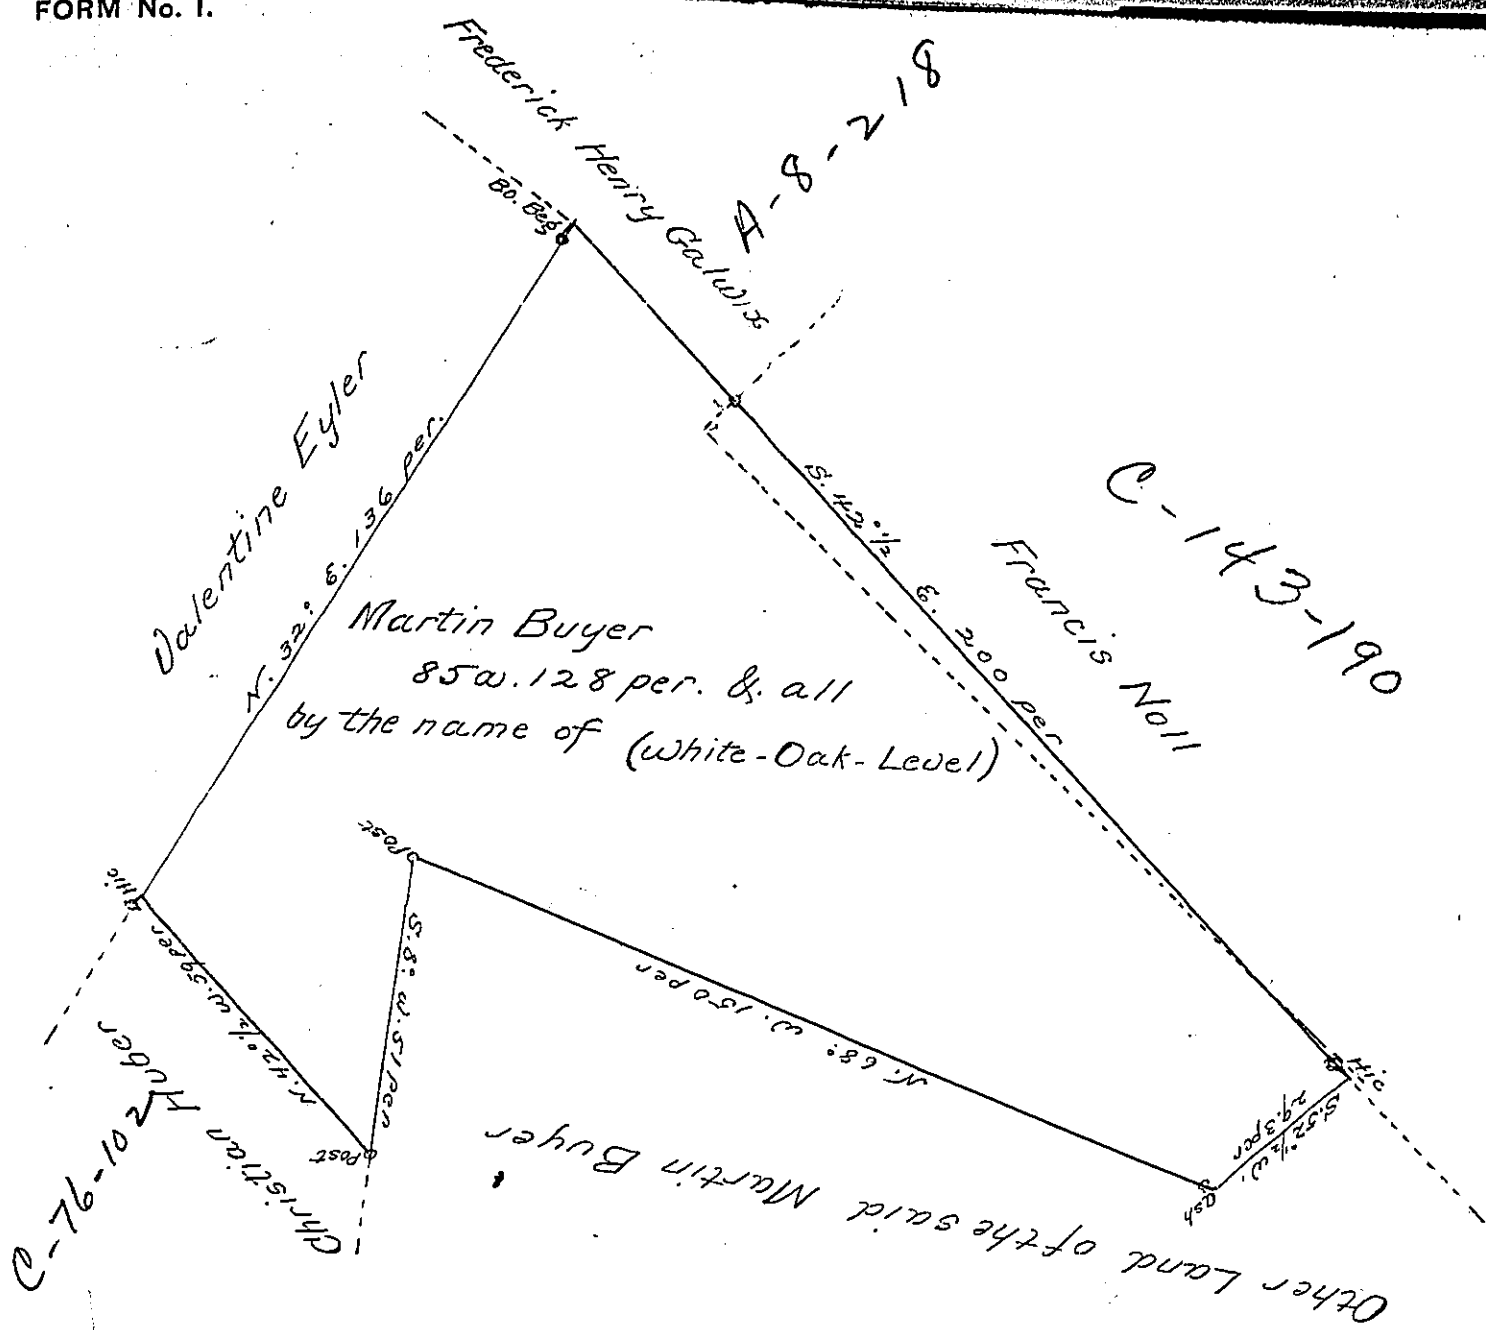 FORM No. 1.
Frederick Henry Galwix
A-8-218
BO. Beg
Valentine Eyler
N. 32° E. 136 per.
S. 42°½ E. 200 per
Francis Noll
C-143-190
Martin Buyer
85a. 128 per. & all
by the name of (White-Oak-Level)
Hic
Post
N. 42°½ W. 59 per
S. 8° W. 51 per
N. 68° W. 150 per
Hic
S. 52°½ W.
29.3 per
ash
Post
Christian Huber
C-76-102
Other Land of the said Martin Buyer